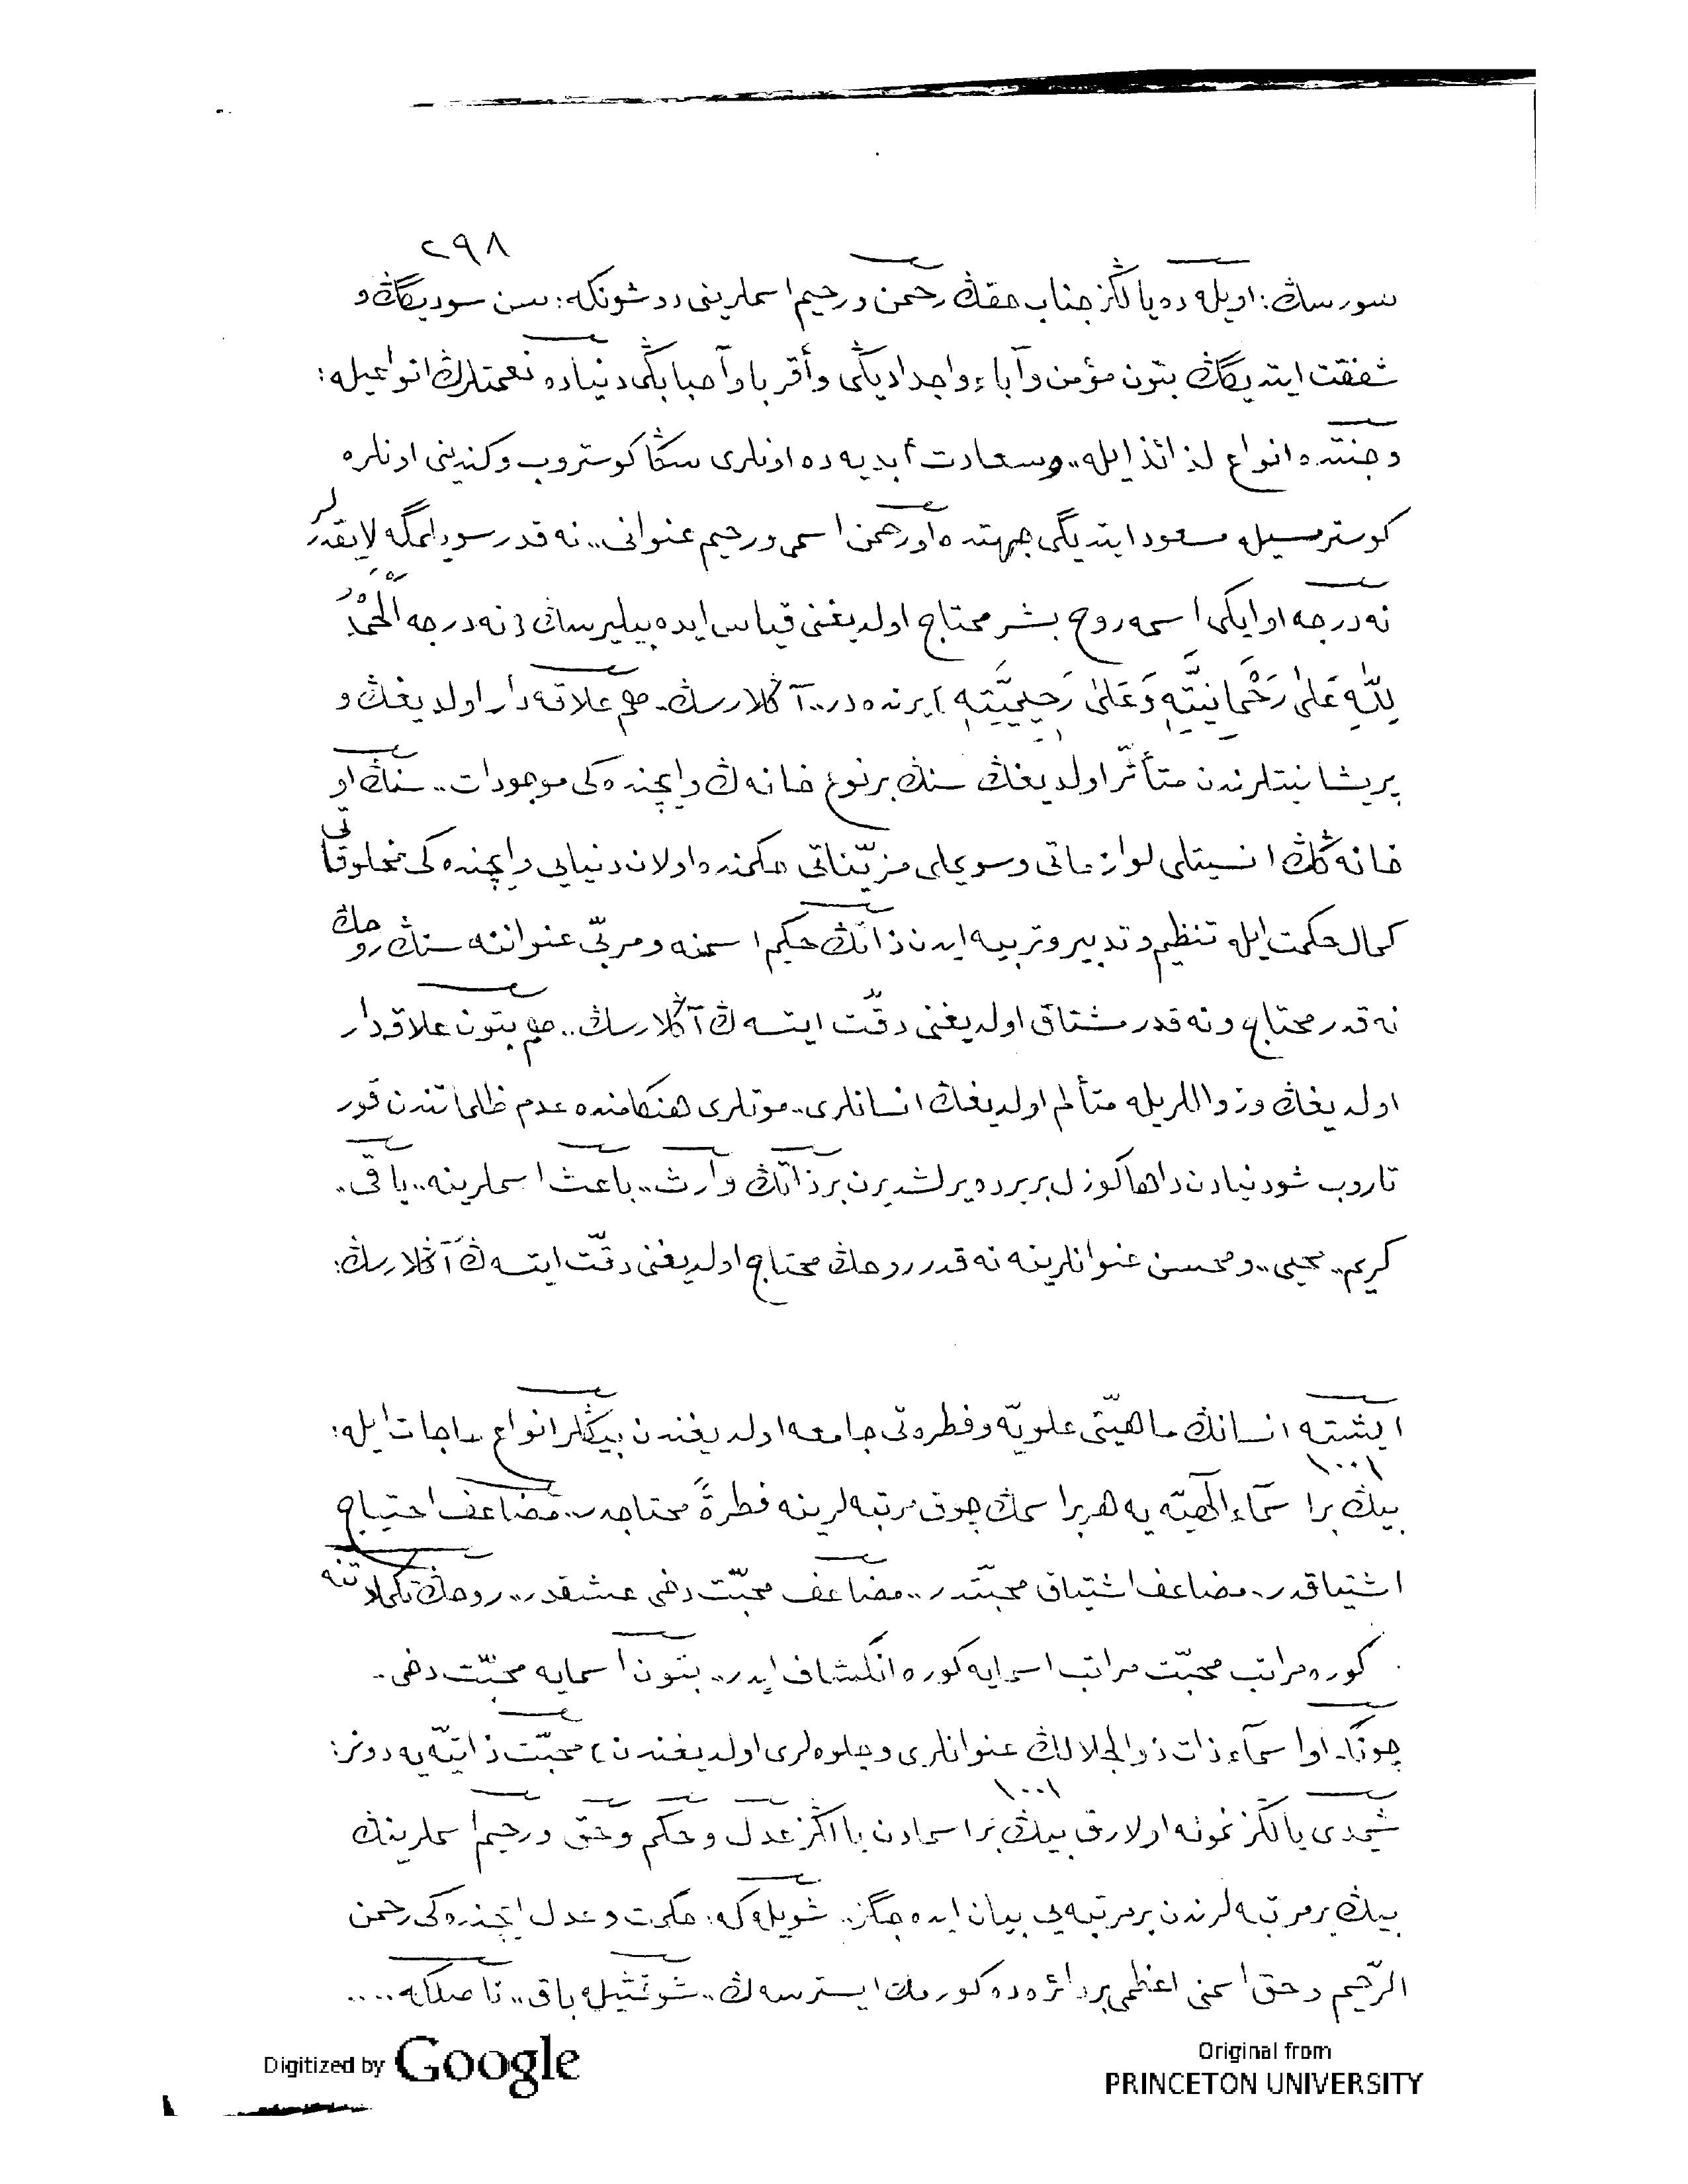 ٢٩٨
سورسڭ: اويله ده يالڭز جناب حقڭ رحمن و رحيم اسملرينى دوشونكه: سن سوديگڭ و
شفقت ايتديگڭ بتون مؤمن و آباء و اجداديڭى و أقربا و أحبابڭى دنياده نعمتلرڭ انواعيله:
و جنتده انواع لذائذ ايله.. و سعادت أبديه ده اونلرى سڭا كوستروب و كندينى اونلره
كوسترمسيله مسعود ايتديگى جهتده او رحمن اسمى و رحيم عنوانى.. نه قدر سويلمگه لايقدرلر
نه درجه او ايكى اسمه روح بشر محتاج اولديغنى قياس ايده بيليرسڭ (نه درجه اَلْحَمْدُ
لِلّٰهِ عَلٰى رَحْمَانِيَّتِهِ وَعَلٰى رَحِيمِيَّتِهِ) يرنده در.. آڭلارسڭ. هم علاقه دار اولديغڭ و
پريشانيتلرندن متأثّر اولديغڭ سنڭ بر نوع خانه ڭ و ايچنده كى موجودات.. سنڭ او
خانه ڭڭ انسيتلى لوازماتى و سويملى مزيّناتى حكمنده اولان دنيايى و ايچنده كى مخلوقاتى
كمال حكمت ايله تنظيم و تدبير و تربيه ايدن ذاتڭ حكيم اسمنه و مربّى عنواننه سنڭ روحڭ
نه قدر محتاج و نه قدر مشتاق اولديغنى دقّت ايتسه ڭ آڭلارسڭ.. هم بتون علاقدار
اولديغڭ و زواللريله متألم اولديغڭ انسانلرى.. موتلرى هنكامنده عدم ظلماتندن قور
تاروب شو دنيادن داها كوزل بر يرده يرلشديرن بر ذاتڭ وارث.. باعث اسملرينه.. باقى..
كريم.. محيى.. و محسن عنوانلرينه نه قدر روحڭ محتاج اولديغنى دقّت ايتسه ڭ آڭلارسڭ:
ايشته انسانڭ ماهيّتى علويّه و فطرتى جامعه اولديغندن بيڭلر انواع حاجات ايله:
١٠٠١
بيڭ بر اسمآء الٰهيّه يه هر بر اسمڭ چوق مرتبه لرينه فطرةً محتاجدر.. مضاعف احتياج
اشتياقدر.. مضاعف اشتياق محبّتدر.. مضاعف محبّت دخى عشقدر.. روحڭ تكملاتنه
كوره مراتب محبّت مراتب اسمايه كوره انكشاف ايدر.. بتون اسمايه محبّت دخى..
چونكه او اسمآء ذات ذوالجلالڭ عنوانلرى و جلوه لرى اولديغندن) محبّت ذاتيّه يه دونر:
١٠٠١
شيمدى يالڭز نمونه اولارق بيڭ بر اسمادن يالڭز عدل و حكم و حق و رحيم اسملرينڭ
بيڭ بر مرتبه لرندن بر مرتبه يى بيان ايده جگز.. شويله كه: حكمت و عدل ايچنده كى رحمن
الرّحيم و حق اسمنى اعظمى بر دائره ده كورمك ايسترسه ڭ.. شو تمثيله باق.. ناصلكه....
Digitized by Google
Original from
PRINCETON UNIVERSITY